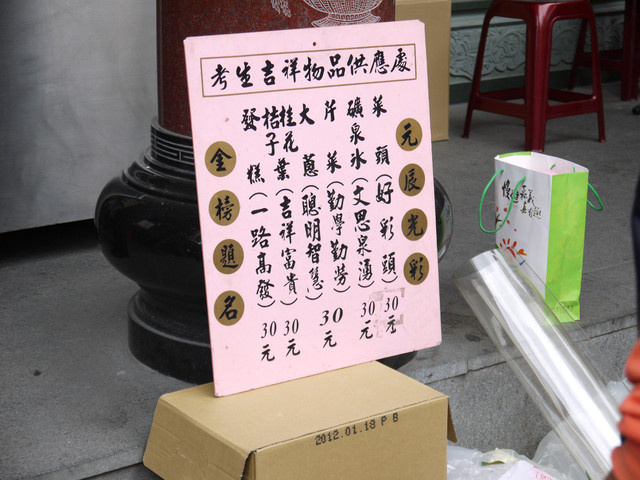 考生吉祥物品供應處
元辰光彩
菜頭(好彩頭)30元
礦泉水(文思泉湧)30元
芹菜(勤學勤勞)30元
大蔥(聰明智慧)
桂花
桔子葉(吉祥富貴)30元
發糕(一路高發)30元
金榜題名
2012.01.18 P B